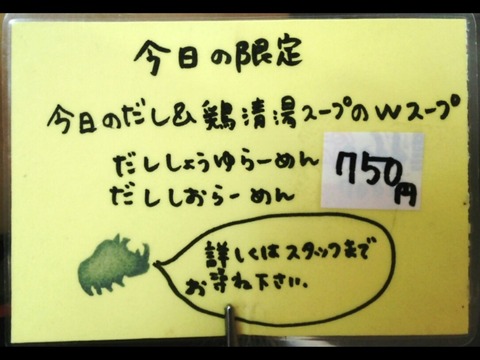 今日の限定
今日のだし&鶏清湯スープのWスープ
だししょうゆらーめん
だししおらーめん
750円
詳しくはスタッフまで
お尋ね下さい.